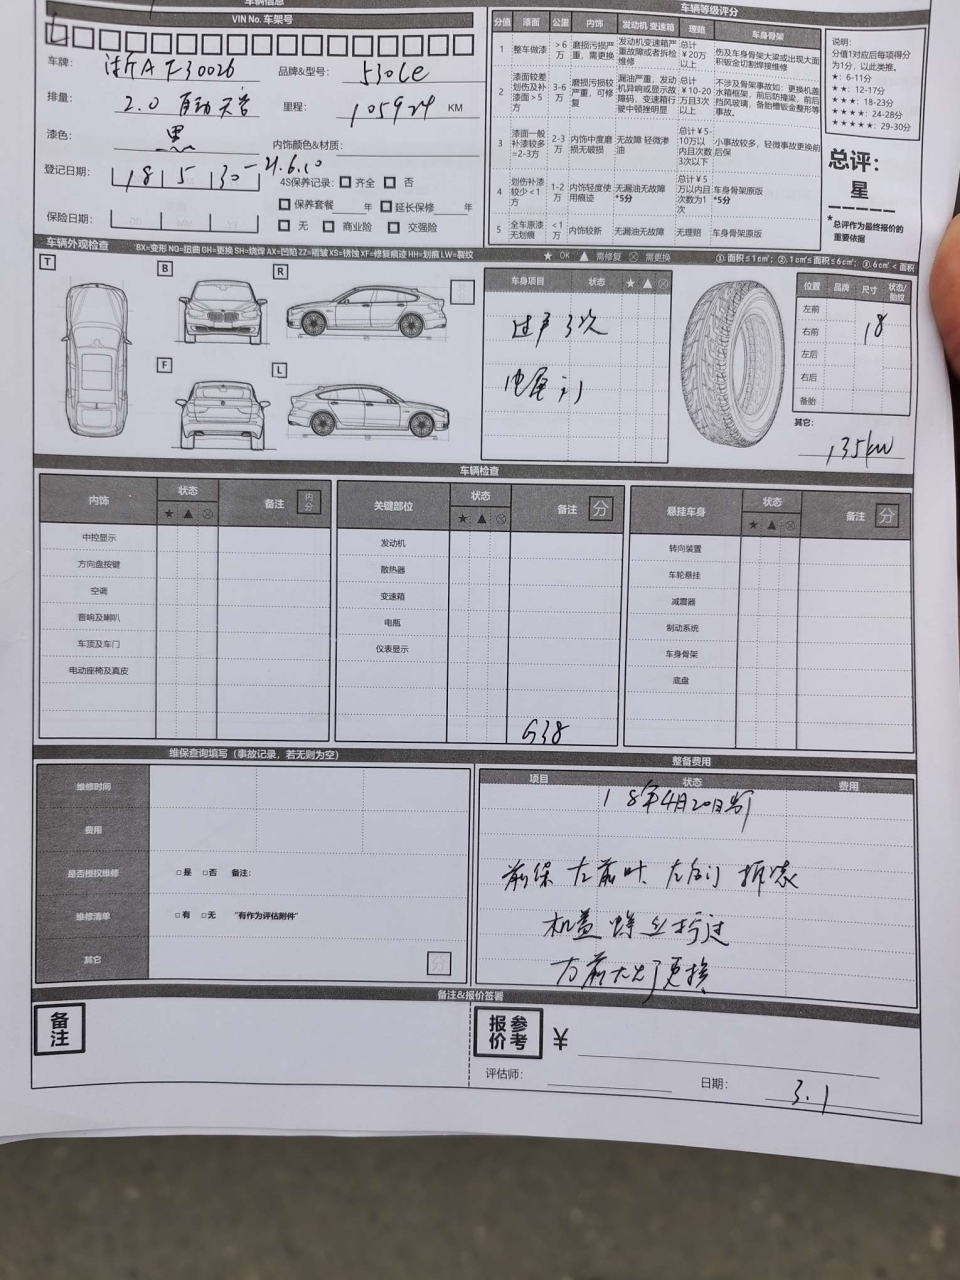 车辆信息
VIN No. 车架号
车牌: 浙A F30026
品牌&型号: 530Le
排量: 2.0 自动天窗
里程: 105924 KM
漆色: 黑
内饰颜色&材质:
登记日期: 18 5 30 - 21.6.10
4S保养记录: 齐全 否
保养套餐 年 延长保修 年
保险日期:
无 商业险 交强险
车辆等级评分
分值 漆面 公里 内饰 发动机 变速箱 理赔 车身骨架
1 整车做漆 >6万 磨损污损严重，需更换 发动机变速箱严重故障或者拆检维修 总计￥20万以上 伤及车身骨架大梁或出现大面积钣金切割焊接维修
2 漆面较差划伤及补漆面>5方 3-6万 磨损污损较严重，可修复 漏油严重，发动机异响或显示故障码，变速箱行驶中顿挫明显 总计￥10-20万且3次以上 不涉及骨架事故如：更换机盖水箱框架，前后防撞梁，前后挡风玻璃，备胎槽钣金整形等事故。
3 漆面一般补漆较多=2-3方 2-3万 内饰中度磨损无破损 无故障 轻微渗油 总计￥5-10万以内且次数3次以下 小事故较多，轻微事故更换前后保
4 划伤补漆较少<1方 1-2万 内饰轻度使用痕迹 无漏油无故障*5分 总计￥5万以内且次数为1次 车身骨架原版*5分
5 全车原漆无划痕 <1万 内饰较新 无漏油无故障 无理赔 车身骨架原版
说明:
分值1对应后每项得分为1分，以此类推。
★: 6-11分
★★: 12-17分
★★★: 18-23分
★★★★: 24-28分
★★★★★: 29-30分
总评:
星
*总评作为最终报价的重要依据
车辆外观检查 *BX=变形 NQ=扭曲 GH=更换 SH=烧焊 AX=凹陷 ZZ=褶皱 XS=锈蚀 XF=修复痕迹 HH=划痕 LW=裂纹
★ OK ▲ 需修复 ⊗ 需更换
①. 面积≤1㎡; ②. 1㎡≤面积≤6㎡; ③. 6㎡<面积
T B R F L
车身项目 状态 ★ ▲ ⊗
过户3次
电尾门
位置 品牌 尺寸 状态/胎纹
左前
右前 18
左后
右后
备胎
其它:
135kw
车辆检查
内饰 状态 ★ ▲ ⊗ 备注 内分
中控显示
方向盘按键
空调
音响及喇叭
车顶及车门
电动座椅及真皮
关键部位 状态 ★ ▲ ⊗ 备注 分
发动机
散热器
变速箱
电瓶
仪表显示
G38
悬挂车身 状态 ★ ▲ ⊗ 备注 分
转向装置
车轮悬挂
减震器
制动系统
车身骨架
底盘
维保查询填写（事故记录，若无则为空）
维修时间
费用
是否授权维修 □是 □否 备注:
维修清单 □有 □无 "有作为评估附件"
其它 分
整备费用
项目 状态 费用
18年4月20日出厂
前保 左前叶 左后门 拆装
机盖 螺丝拧过
左前大灯更换
备注&报价签署
备注
参考报价 ￥
评估师:
日期: 3.1